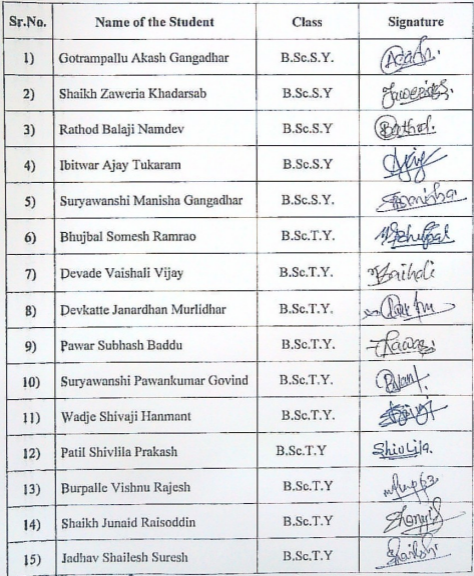 Sr.No. Name of the Student Class Signature
1) Gotrampallu Akash Gangadhar B.Sc.S.Y.
2) Shaikh Zaweria Khadarsab B.Sc.S.Y
3) Rathod Balaji Namdev B.Sc.S.Y
4) Ibitwar Ajay Tukaram B.Sc.S.Y
5) Suryawanshi Manisha Gangadhar B.Sc.S.Y.
6) Bhujbal Somesh Ramrao B.Sc.T.Y.
7) Devade Vaishali Vijay B.Sc.T.Y.
8) Devkatte Janardhan Murlidhar B.Sc.T.Y.
9) Pawar Subhash Baddu B.Sc.T.Y.
10) Suryawanshi Pawankumar Govind B.Sc.T.Y.
11) Wadje Shivaji Hanmant B.Sc.T.Y.
12) Patil Shivlila Prakash B.Sc.T.Y Shivlila.
13) Burpalle Vishnu Rajesh B.Sc.T.Y
14) Shaikh Junaid Raisoddin B.Sc.T.Y
15) Jadhav Shailesh Suresh B.Sc.T.Y